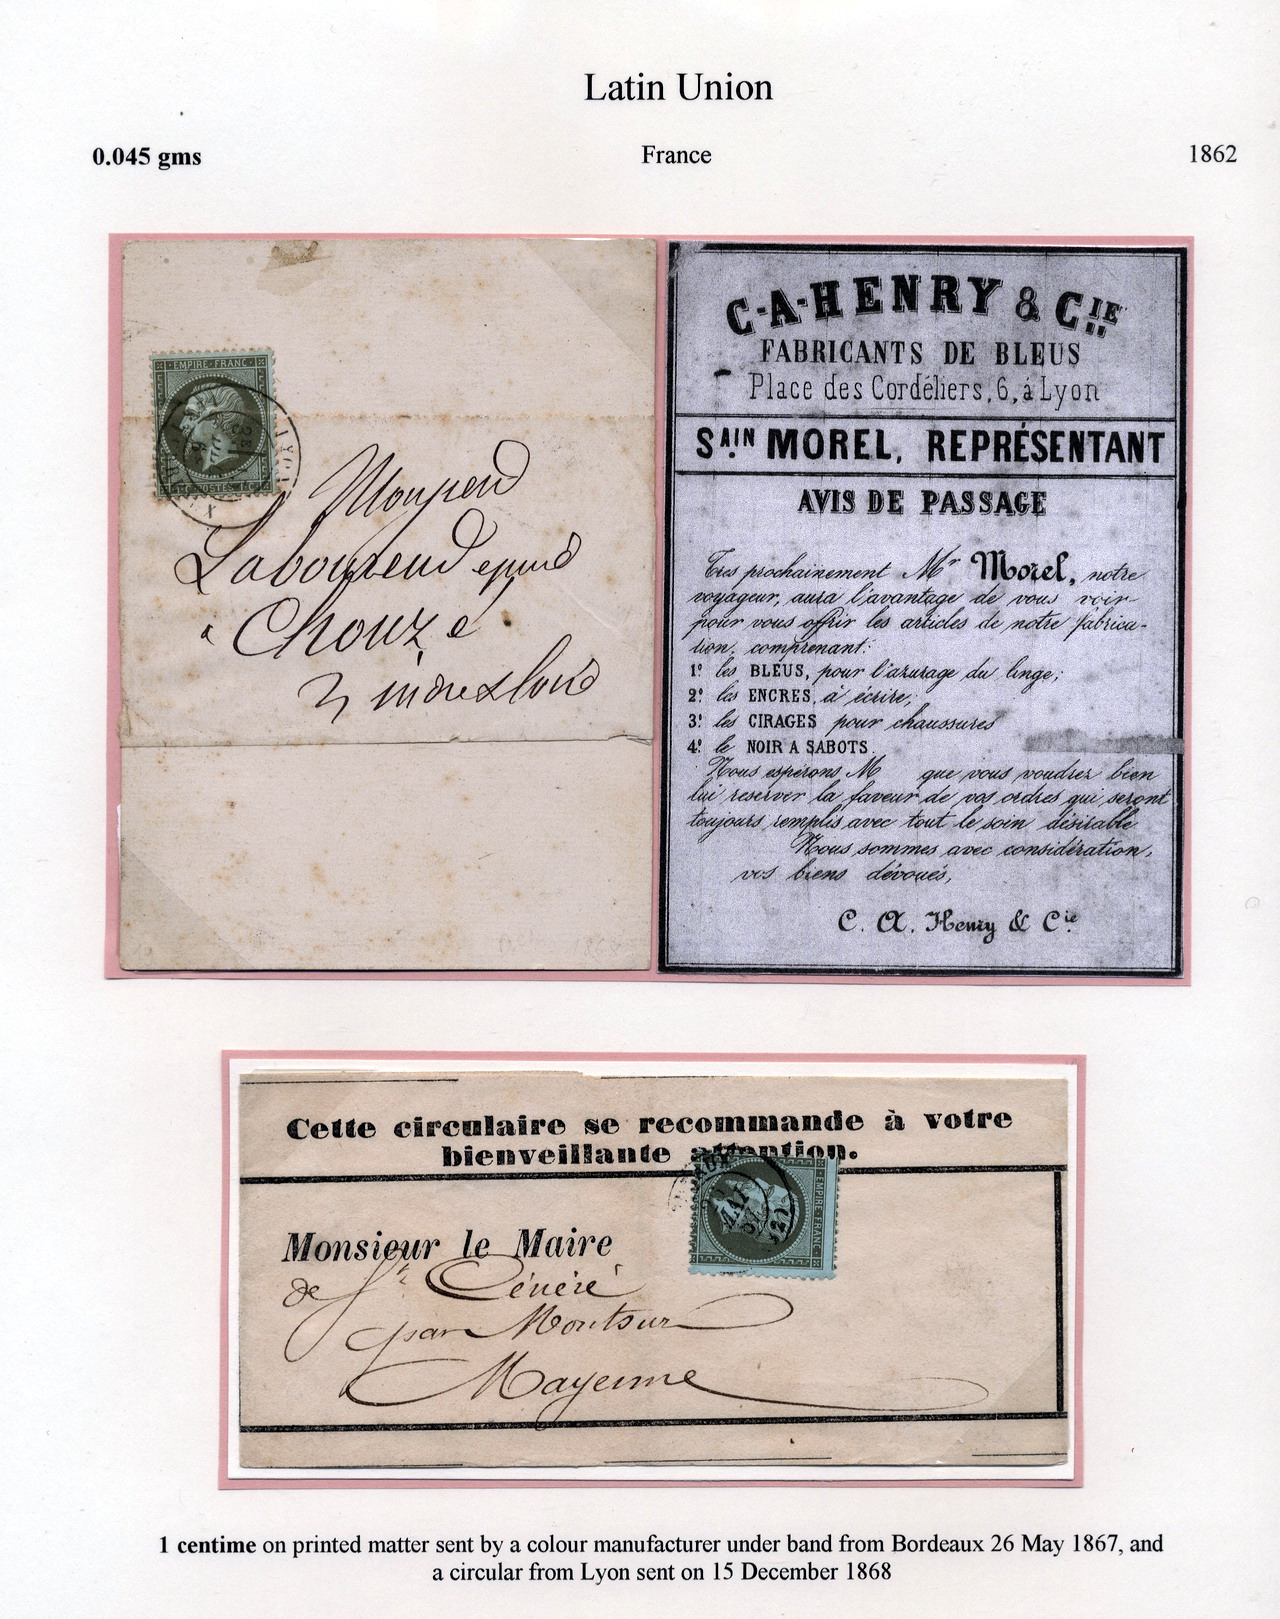 Latin Union
0.045 gms France 1862
EMPIRE FRANC
1 C POSTES 1 C
LYON
Monsieur
Laboureau epicier
a Chouzé
Indre et Loire
C-A-HENRY & CIE
FABRICANTS DE BLEUS
Place des Cordéliers, 6, à Lyon
SAIN MOREL, REPRÉSENTANT
AVIS DE PASSAGE
Très prochainement Mr Morel, notre
voyageur, aura l'avantage de vous voir
pour vous offrir les articles de notre fabrica-
tion, comprenant:
1º les BLEUS, pour l'azurage du linge;
2º les ENCRES, à écrire;
3º les CIRAGES pour chaussures
4º le NOIR A SABOTS.
Nous espérons M que vous voudrez bien
lui reserver la faveur de vos ordres qui seront
toujours remplis avec tout le soin désirable
Nous sommes avec considération,
vos biens dévoués,
C. A. Henry & Cie
Cette circulaire se recommande à votre
bienveillante attention.
EMPIRE FRANC
MAI
67
Monsieur le Maire
de St Cénéré
par Montsur
Mayenne
1 centime on printed matter sent by a colour manufacturer under band from Bordeaux 26 May 1867, and
a circular from Lyon sent on 15 December 1868